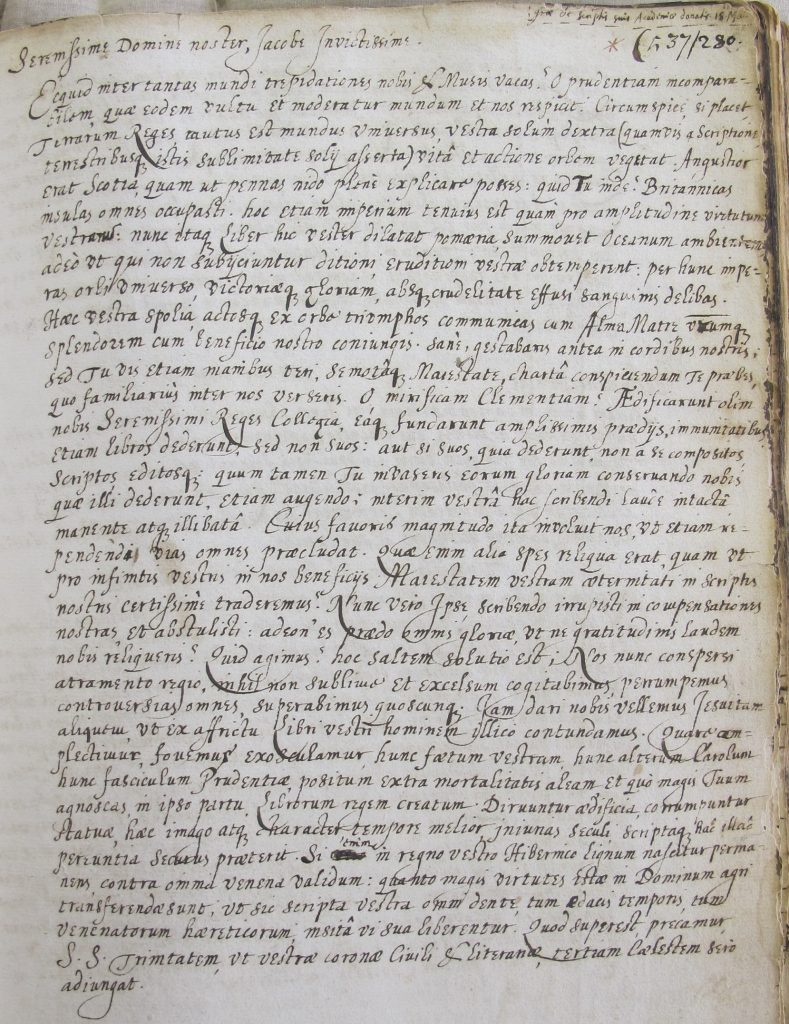 Jacobi de scriptis suis Academiae donatis
* 637/280.
Serenissime Domine noster, Jacobe Invictissime.
Ecquid inter tantas mundi trepidationes nobis & Musis vacas? O prudentiam incompara-
bilem, quæ eodem vultu et moderatur mundum et nos respicit. Circumspice, si placet
Terrarum Reges mutus est mundus universus, vestra solùm dextra (quamvis a scriptione
terrestribusq istis sublimitate solij asserta) vitâ et actione orbem vegetat. Angustior
erat Scotia, quam ut pennas nido plenè explicare posses: quid Tu inde? Britannicas
insulas omnes occupasti. hoc etiam imperium tenuius est quàm pro amplitudine virtutum
vestrarum: nunc itaq Liber hic vester dilatat pomœria, summovet Oceanum ambientem
adeò ut qui non subijciuntur ditioni eruditioni vestræ obtemperent: per hunc impe-
ras orbi universo, victoriæq gloriam, absq crudelitate effusi sanguinis delibas.
Hæc vestra spolia, actosq ex orbe triumphos communicas cum Alma Matre utrumq
splendorem cum beneficio nostro coniungis. Sanè, gestabaris antea in cordibus nostris,
sed Tu vis etiam manibus teri, semotâq Maiestate, chartâ conspiciendum Te præbes,
quo familiariùs inter nos verseris. O mirificam Clementiam! Ædificarunt olim
nobis Serenissimi Reges Collegia, eáq fundarunt amplissimis prædijs, immunitatibus
etiam libros dederunt, sed non suos: aut si suos, quia dederunt, non a se compositos
scriptos editosq: quum tamen Tu invaseris eorum gloriam conservando nobis
quæ illi dederunt, etiam augendo; interim vestrâ hac scribendi laude intactâ
manente atq illibatâ. Cuius favoris magnitudo ita involuit nos, ut etiam re-
pendendi vias omnes præcludat. Quæ enim alia spes reliqua erat, quam ut
pro infinitis vestris in nos beneficijs Maiestatem vestram æternitati in scriptis
nostris certissimè traderemus? Nunc vero Ipse scribendo irrupisti in compensationes
nostras et abstulisti: adeon' es prædo omnis gloriæ, ut ne gratitudinis laudem
nobis reliqueris? Quid agimus? hoc saltem solutio est; Nos nunc conspersi
atramento regio, nihil non sublime et excelsum cogitabimus, perrumpemus
controversias omnes, superabimus quoscunq. Iam dari nobis vellemus Jesuitam
aliquem, ut ex affrictu Libri vestri hominem illico contundamus. Quare am-
plectimur, fovemus exosculamur, hunc fœtum vestrum, hunc alterum Carolum
hunc fasciculum Prudentiæ, positum extra mortalitatis aleam et quò magis Tuum
agnoscas, in ipso partu, Librorum regem creatum. Diruuntur ædificia, corrumpuntur
statuæ, hæc imago atq character tempore melior, iniurias seculi, scriptaq hac illac
pereuntia securus præterit. Si enim in regno vestro Hibernico lignum nascitur perma-
nens, contra omnia venena validum: quanto magis virtutes istæ in Dominum agri
transferendæ sunt, ut sic scripta vestra omni dente, tum edacis temporis, tum
venenatorum hæreticorum, insitâ vi sua liberentur. Quod superest, precamur
S. S. Trinitatem, ut vestræ coronæ Civili & literariæ, tertiam Cælestem serò
adiungat.